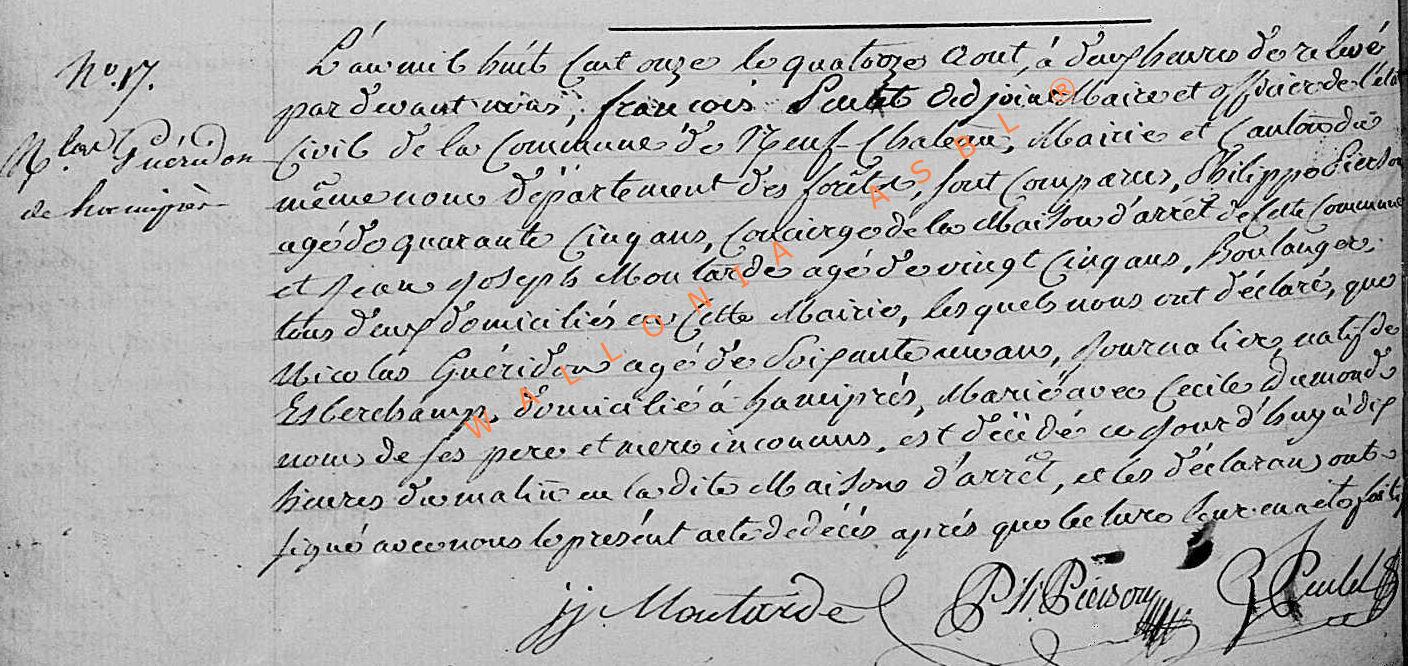 No. 17.
Nlas Guéridon
de hamipré
L'an mil huit cent onze le quatorze aout, à deux heures de relevé
par devant nous, françois Adjoint Maire et officier de l'etat
Civil de la Commune de Neuf-Chateau, Mairie et Canton du
même nom département des forêts, sont comparus, Philippe Pierson
agé de quarante cinq ans, concierge de la Maison d'arrêt de cette Commune
et Jean Joseph Moutarde agé de vingt cinq ans, Boulanger,
tous deux domiciliés en cette Mairie, les quels nous ont déclaré, que
Nicolas Guéridon agé de soixante un ans, Journalier natif de
Esberchamp, domicilié à hamiprés, Marié avec Cecile Dumonde
noms de ses pere et mere inconnus, est décédé ce jour d'huy à dix
heures du matin en la dite Maison d'arrêt, et les déclarans ont
signé avec nous le présent acte de décés aprés que lecture leur en a eté faite
jj. Moutarde Ph. Pierson
WALLONIA ASBL ®